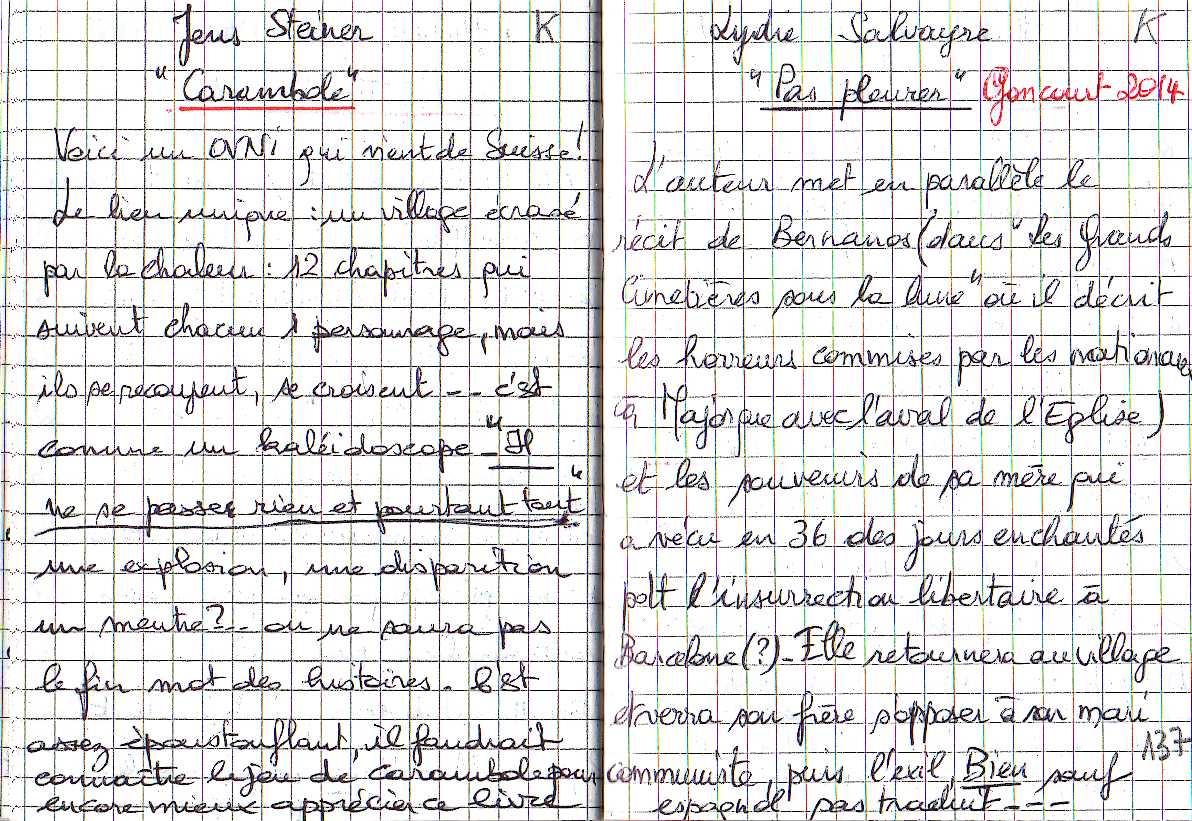 Jens Steiner K
"Carambole"
Voici un OVNi qui vient de Suisse!
Le lieu unique : un village écrasé
par la chaleur : 12 chapitres qui
suivent chacun 1 personnage, mais
ils se recoupent, se croisent -- c'est
comme un kaléidoscope - "Il
ne se passe rien et pourtant tout"
une explosion, une disparition
un meutre? -- on ne saura pas
le fin mot des histoires. C'est
assez époustouflant, il faudrait
connaître le jeu de Carambole pour
encore mieux apprécier ce livre
Lydie Salvayre K
"Pas pleurer" Goncourt 2014
L'auteur met en parallèle le
récit de Bernanos (dans "Les Grands
Cimetières sous la lune" où il décrit
les horreurs commises par les nationaux
à Majorque avec l'aval de l'Eglise)
et les souvenirs de sa mère qui
a vécu en 36 des jours enchantés
pdt l'insurrection libertaire à
Barcelone (?) - Elle retournera au village
et verra son frère s'opposer à son mari
communiste, puis l'exil. Bien sauf
espagnol pas traduit ---
137